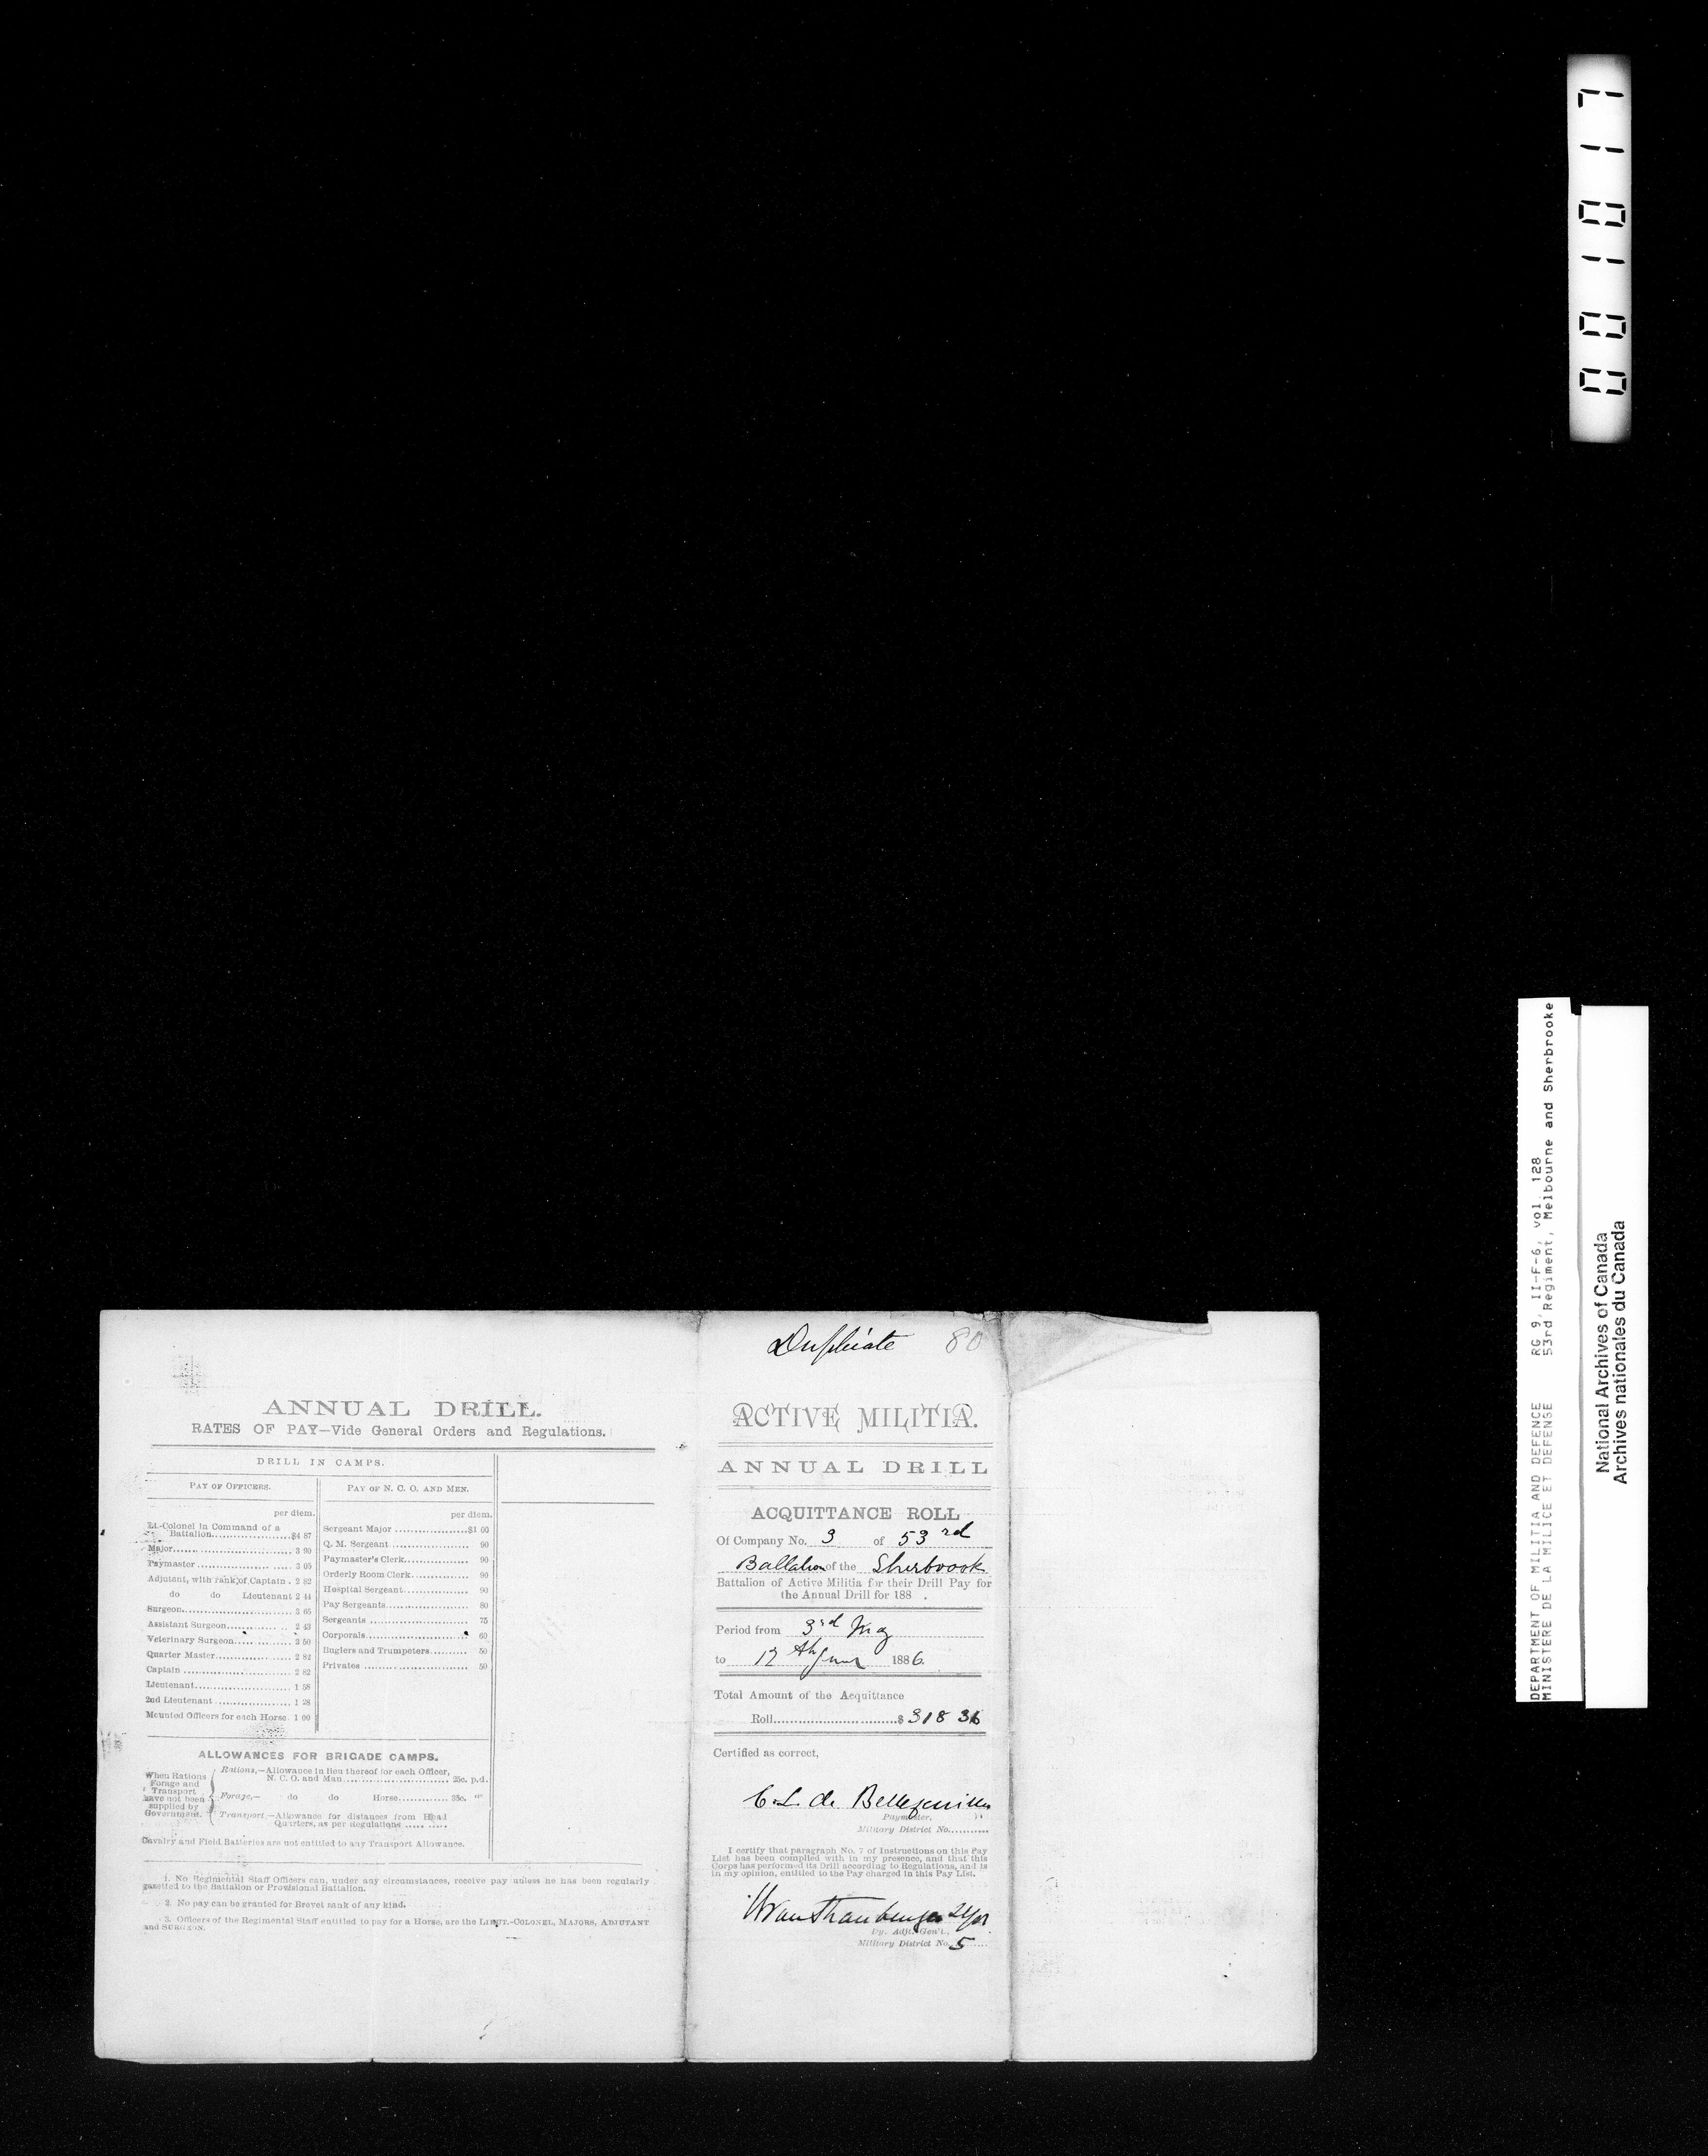 ANNUAL DRILL.
RATES OF PAY—Vide General Orders and Regulations.
DRILL IN CAMPS.
PAY OF OFFICERS.
per diem.
Lt.-Colonel in Command of a
Battalion....................$4 87
Major.............................. 3 90
Paymaster ........................ 3 05
Adjutant, with rank of Captain . 2 82
do do Lieutenant 2 44
Surgeon............................ 3 65
Assistant Surgeon.............. 2 43
Veterinary Surgeon............. 2 50
Quarter Master.................. 2 82
Captain ........................... 2 82
Lieutenant........................ 1 58
2nd Lieutenant .................. 1 28
Mounted Officers for each Horse. 1 00
PAY OF N. C. O. AND MEN.
per diem.
Sergeant Major ..................$1 00
Q. M. Sergeant ................... 90
Paymaster's Clerk................ 90
Orderly Room Clerk.............. 90
Hospital Sergeant................ 90
Pay Sergeants..................... 80
Sergeants ......................... 75
Corporals.......................... 60
Buglers and Trumpeters......... 50
Privates ........................... 50
ALLOWANCES FOR BRIGADE CAMPS.
When Rations
Forage and
Transport
have not been
supplied by
Government.
Rations,—Allowance in lieu thereof for each Officer,
N. C. O. and Man ........................ 25c. p.d.
Forage,— do do Horse............ 35c. "
Transport,—Allowance for distances from Head
Quarters, as per Regulations ..... .....
Cavalry and Field Batteries are not entitled to any Transport Allowance.
1. No Regimental Staff Officers can, under any circumstances, receive pay unless he has been regularly
gazetted to the Battalion or Provisional Battalion.
2. No pay can be granted for Brevet rank of any kind.
3. Officers of the Regimental Staff entitled to pay for a Horse, are the LIEUT.-COLONEL, MAJORS, ADJUTANT
and SURGEON.
Duplicate 80
ACTIVE MILITIA.
ANNUAL DRILL
ACQUITTANCE ROLL
Of Company No. 3 of 53rd
Battalion of the Sherbrook
Battalion of Active Militia for their Drill Pay for
the Annual Drill for 188 .
Period from 3rd
to 1886
Total Amount of the Acquittance
Roll..............................$ 318 36
Certified as correct,
C. L. de
Paymaster.
Military District No...........
I certify that paragraph No. 7 of Instructions on this Pay
List has been complied with in my presence, and that this
Corps has performed its Drill according to Regulations, and is
in my opinion, entitled to the Pay charged in this Pay List.
Dy. Adjt. Gen'l.,
Military District No. 5
001017
DEPARTMENT OF MILITIA AND DEFENCE RG 9, II-F-6, vol. 128
MINISTERE DE LA MILICE ET DEFENSE 53rd Regiment, Melbourne and Sherbrooke
National Archives of Canada
Archives nationales du Canada